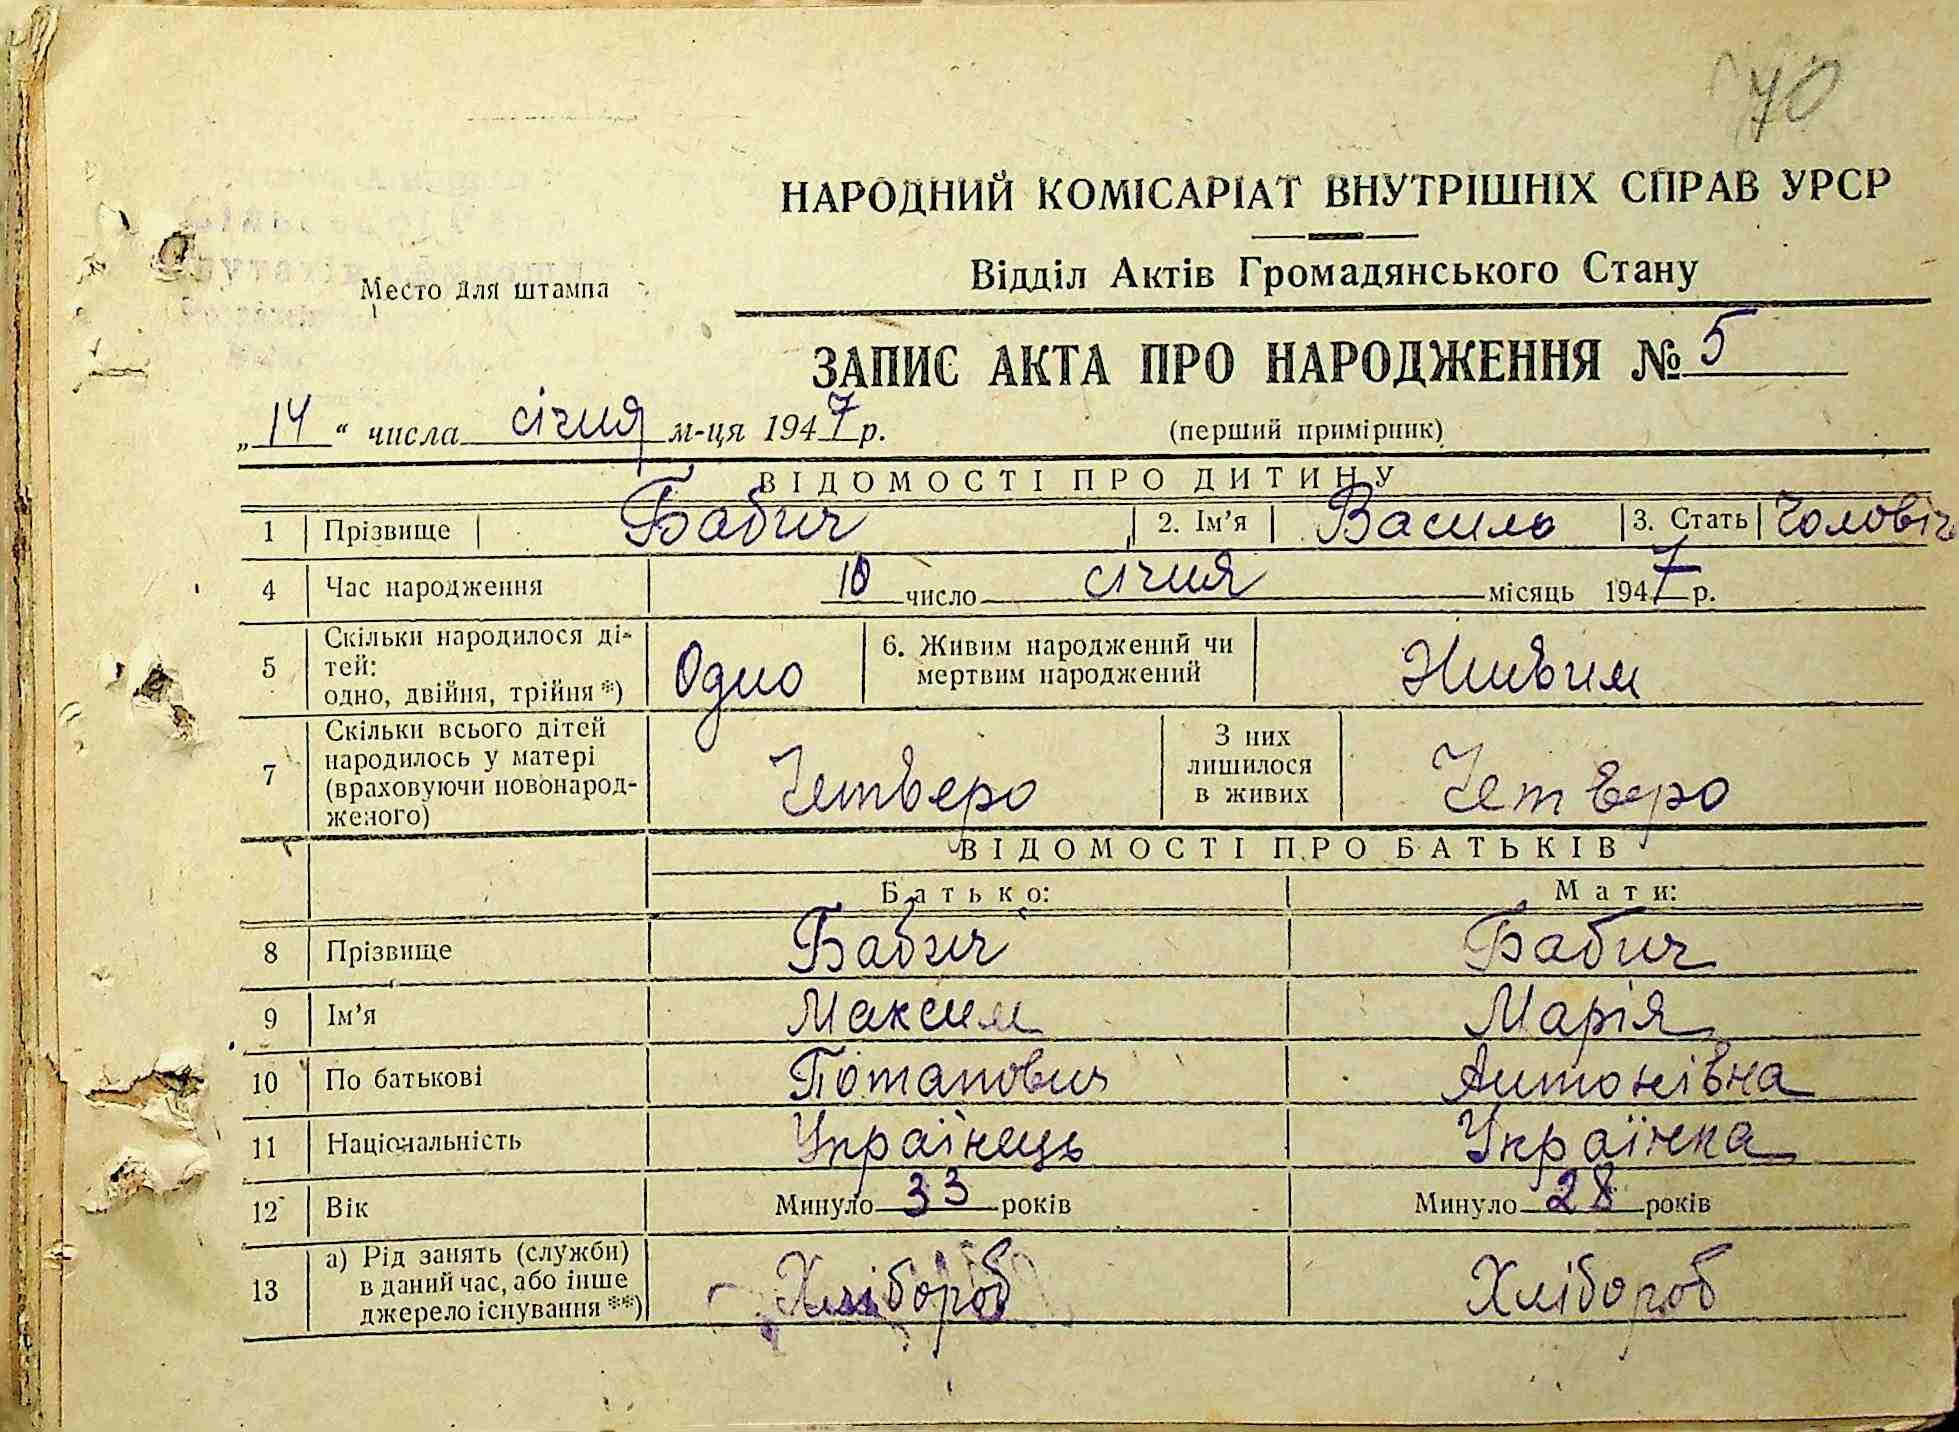 70
НАРОДНИЙ КОМІСАРІАТ ВНУТРІШНІХ СПРАВ УРСР
Відділ Актів Громадянського Стану
Место для штампа
ЗАПИС АКТА ПРО НАРОДЖЕННЯ № 5
„14“ числа січня м-ця 1947 р. (перший примірник)
ВІДОМОСТІ ПРО ДИТИНУ
1 Прізвище Бабич 2. Ім'я Василь 3. Стать Чоловіч
4 Час народження 10 число січня місяць 1947 р.
5 Скільки народилося ді-
тей:
одно, двійня, трійня *) Одно 6. Живим народжений чи
мертвим народжений Живим
7 Скільки всього дітей
народилось у матері
(враховуючи новонарод-
женого) Четверо З них
лишилося
в живих Четверо
ВІДОМОСТІ ПРО БАТЬКІВ
Батько: Мати:
8 Прізвище Бабич Бабич
9 Ім'я Максим Марія
10 По батькові Потапович Антонівна
11 Національність Українець Українка
12 Вік Минуло 33 років Минуло 28 років
13 а) Рід занять (служби)
в даний час, або інше
джерело існування **) Хлібороб Хлібороб